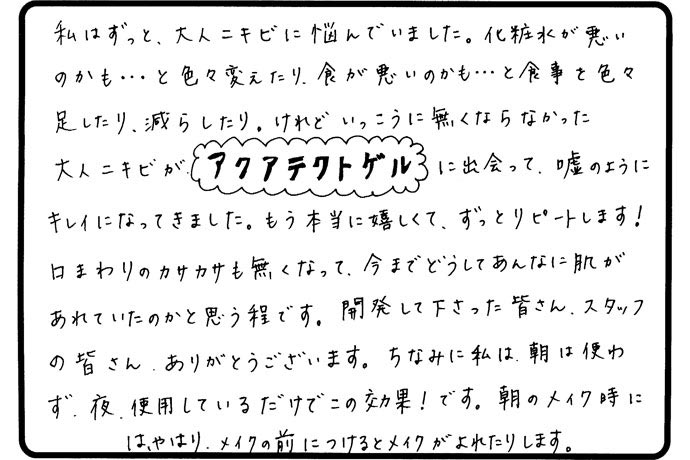 私はずっと、大人ニキビに悩んでいました。化粧水が悪い
のかも…と色々変えたり、食が悪いのかも…と食事を色々
足したり、減らしたり。けれどいっこうに無くならなかった
大人ニキビが、アクアテクトゲルに出会って、嘘のように
キレイになってきました。もう本当に嬉しくて、ずっとリピートします!
口まわりのカサカサも無くなって、今までどうしてあんなに肌が
あれていたのかと思う程です。開発して下さった皆さん、スタッフ
の皆さん、ありがとうございます。ちなみに私は、朝は使わ
ず、夜、使用しているだけでこの効果!です。朝のメイク時に
は、やはり、メイクの前につけるとメイクがよれたりします。